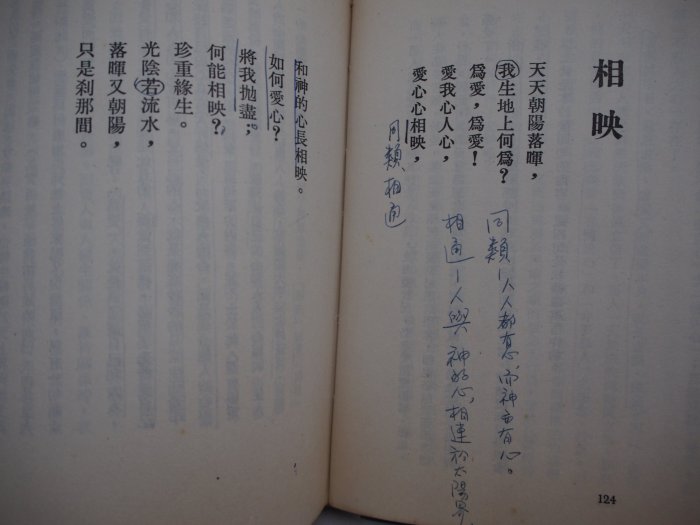 相映
天天朝陽落暉，
我生地上何爲？
爲愛，爲愛！
愛我心人心，
愛心心相映，
同類相通
同類－人人都有心，而神亦有心。
相通－人與神的心，相連於太陽界
124
和神的心長相映。
如何愛心？
將我拋盡；
何能相映？
珍重緣生。
光陰若流水，
落暉又朝陽，
只是刹那間。